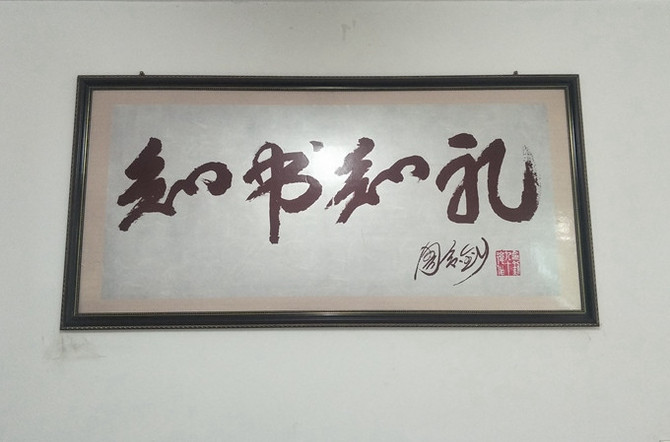 知书知礼